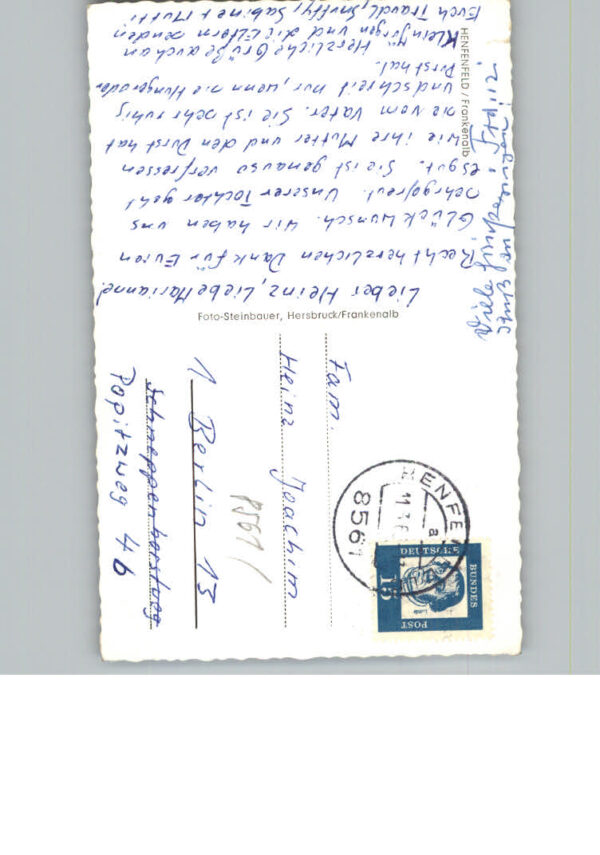 HENFENFELD / Frankenalb
Lieber Heinz, Liebe Marianne!
Recht herzlichen Dank für Euren
Glückwunsch. Wir haben uns
sehr gefreut. Unserer Tochter geht
es gut. Sie ist genauso verfressen
wie ihre Mutter und den Durst hat
sie vom Vater. Sie ist sehr ruhig
und schreit nur, wenn sie Hunger oder
Durst hat.
Herzliche Grüße auch an
Klein Jürgen und die Eltern senden
Euch Traudl, Sabine + Mutti
Viele
Foto-Steinbauer, Hersbruck/Frankenalb
Fam.
Heinz Joachim
1 Berlin 13
Popitzweg 4b
8561
HENFEN
8561
a
DEUTSCHE
BUNDES
POST
15